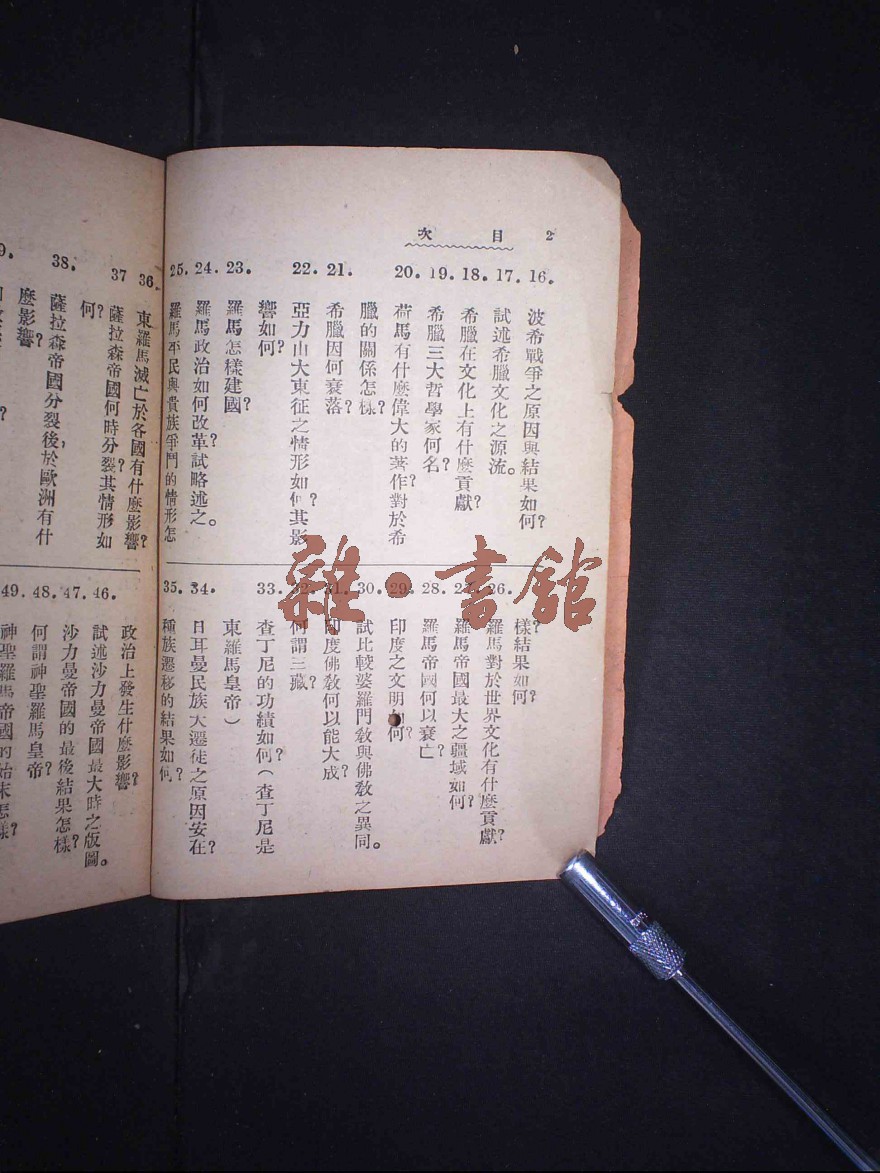 目次 2
16. 波希戰爭之原因與結果如何？
17. 試述希臘文化之源流。
18. 希臘在文化上有什麼貢獻？
19. 希臘三大哲學家何名？
20. 荷馬有什麼偉大的著作？對於希
臘的關係怎樣？
21. 希臘因何衰落？
22. 亞力山大東征之情形如何？其影
響如何？
23. 羅馬怎樣建國？
24. 羅馬政治如何改革？試略述之。
25. 羅馬平民與貴族爭鬥的情形怎
樣？結果如何？
26. 羅馬對於世界文化有什麼貢獻？
27. 羅馬帝國最大之疆域如何？
28. 羅馬帝國何以衰亡？
29. 印度之文明如何？
30. 試比較婆羅門教與佛教之異同。
31. 印度佛教何以能大成？
32. 何謂三藏？
33. 查丁尼的功績如何？（查丁尼是
東羅馬皇帝）
34. 日耳曼民族大遷徒之原因安在？
35. 種族遷移的結果如何？
36. 東羅馬滅亡於各國有什麼影響？
37 薩拉森帝國何時分裂？其情形如
何？
38. 薩拉森帝國分裂後，於歐洲有什
麼影響？
政治上發生什麼影響？
46. 試述沙力曼帝國最大時之版圖。
47. 沙力曼帝國的最後結果怎樣？
48. 何謂神聖羅馬皇帝？
49. 神聖羅馬帝國的始末怎樣？
雜·書館